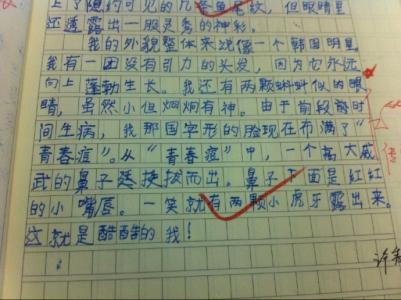 上了隐约可见的几条鱼尾纹,但眼睛里
还透露出一股灵秀的神彩。
我的外貌整体来说像一个韩国明星。
我有一团没有引力的头发,因为它永远
向上蓬勃生长。我还有两颗蝌蚪似的眼
睛,虽然小但炯炯有神。由于前段时
间生病,我那国字形的脸现在布满了“
青春痘”。从“青春痘”中,一个高大威
武的鼻子挺拔而出。鼻子下面是红红
的小嘴唇。一笑就有两颗小虎牙露出来。
这就是酷酷的我!